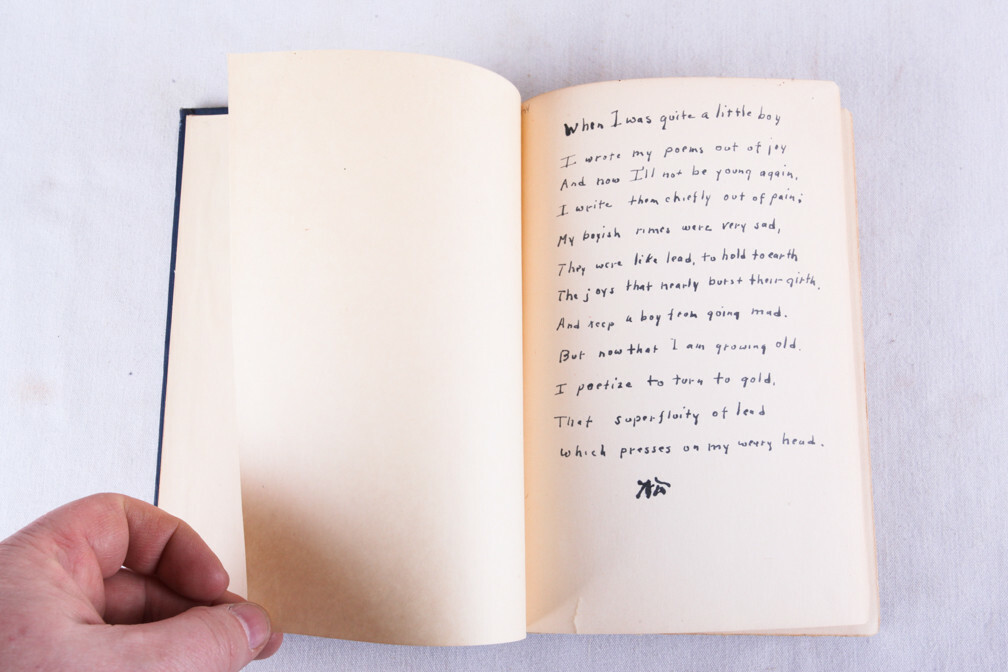 When I was quite a little boy
I wrote my poems out of joy
And now I'll not be young again,
I write them chiefly out of pain;
My boyish rimes were very sad,
They were like lead, to hold to earth
The joys that nearly burst their girth,
And keep a boy from going mad.
But now that I am growing old.
I poetize to turn to gold,
That superfluity of lead
Which presses on my weary head.